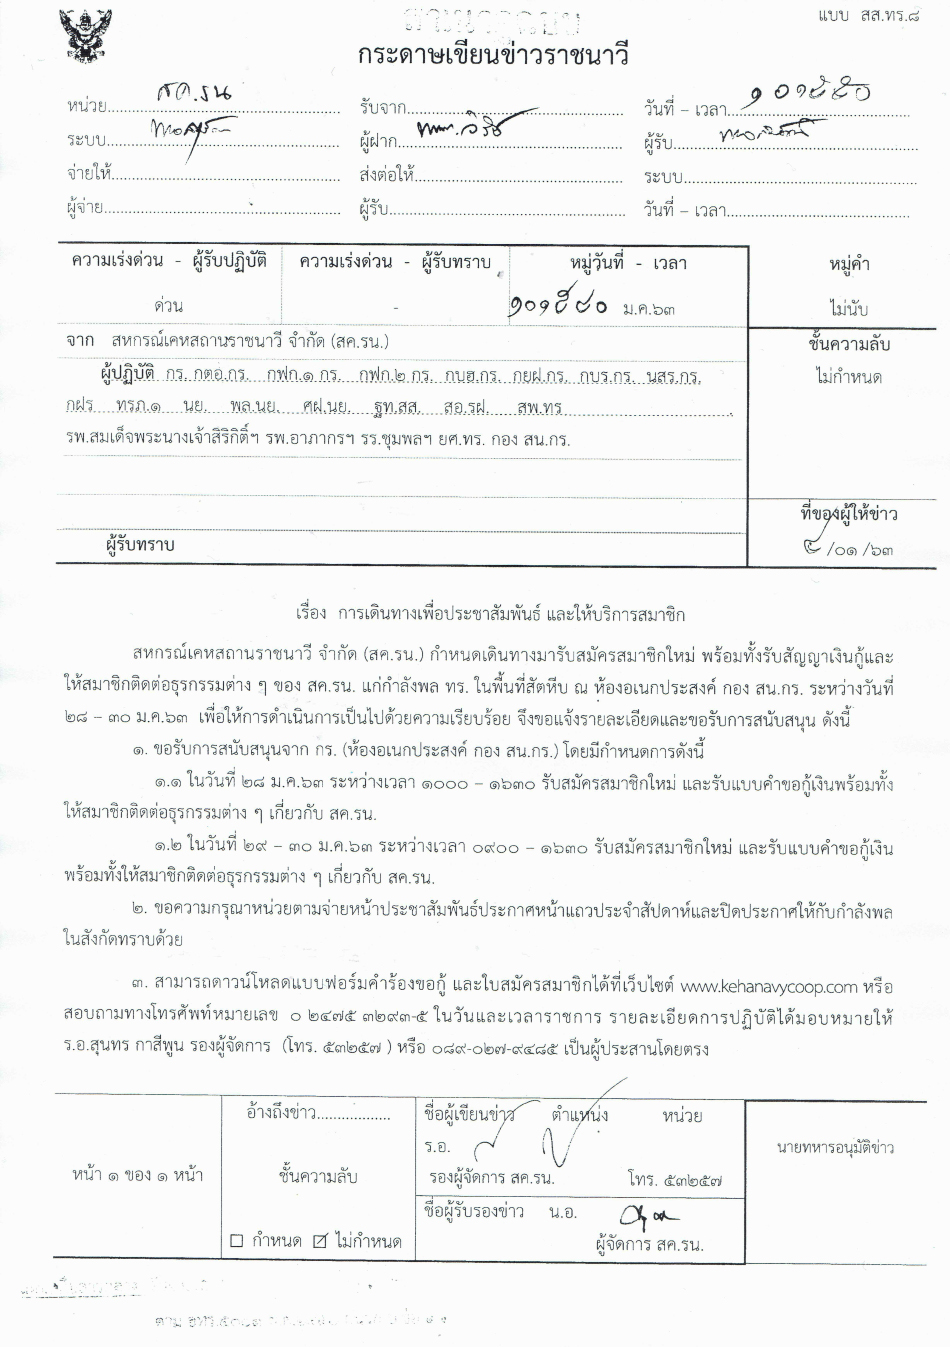 แบบ สส.ทร.๘
กระดาษเขียนข่าวราชนาวี
หน่วย สค.รน รับจาก วันที่ – เวลา
ระบบ ผู้ฝาก ผู้รับ
จ่ายให้ ส่งต่อให้ ระบบ
ผู้จ่าย ผู้รับ วันที่ – เวลา
ความเร่งด่วน - ผู้รับปฏิบัติ ความเร่งด่วน - ผู้รับทราบ หมู่วันที่ - เวลา หมู่คำ
ด่วน - ม.ค.๖๓ ไม่นับ
จาก สหกรณ์เคหสถานราชนาวี จำกัด (สค.รน.) ชั้นความลับ
ผู้ปฏิบัติ กร. กตอ.กร. กฟก.๑ กร. กฟก.๒ กร. กบฮ.กร. กยฝ.กร. กบร.กร. นสร.กร. ไม่กำหนด
กฝร ทรภ.๑ นย. พล.นย. ศฝ.นย. ฐท.สส. สอ.รฝ. สพ.ทร
รพ.สมเด็จพระนางเจ้าสิริกิติ์ฯ รพ.อาภากรฯ รร.ชุมพลฯ ยศ.ทร. กอง สน.กร.
ที่ของผู้ให้ข่าว
ผู้รับทราบ /๐๑ /๖๓
เรื่อง การเดินทางเพื่อประชาสัมพันธ์ และให้บริการสมาชิก
สหกรณ์เคหสถานราชนาวี จำกัด (สค.รน.) กำหนดเดินทางมารับสมัครสมาชิกใหม่ พร้อมทั้งรับสัญญาเงินกู้และ
ให้สมาชิกติดต่อธุรกรรมต่าง ๆ ของ สค.รน. แก่กำลังพล ทร. ในพื้นที่สัตหีบ ณ ห้องอเนกประสงค์ กอง สน.กร. ระหว่างวันที่
๒๘ – ๓๐ ม.ค.๖๓ เพื่อให้การดำเนินการเป็นไปด้วยความเรียบร้อย จึงขอแจ้งรายละเอียดและขอรับการสนับสนุน ดังนี้
๑. ขอรับการสนับสนุนจาก กร. (ห้องอเนกประสงค์ กอง สน.กร.) โดยมีกำหนดการดังนี้
๑.๑ ในวันที่ ๒๘ ม.ค.๖๓ ระหว่างเวลา ๑๐๐๐ – ๑๖๓๐ รับสมัครสมาชิกใหม่ และรับแบบคำขอกู้เงินพร้อมทั้ง
ให้สมาชิกติดต่อธุรกรรมต่าง ๆ เกี่ยวกับ สค.รน.
๑.๒ ในวันที่ ๒๙ – ๓๐ ม.ค.๖๓ ระหว่างเวลา ๐๙๐๐ – ๑๖๓๐ รับสมัครสมาชิกใหม่ และรับแบบคำขอกู้เงิน
พร้อมทั้งให้สมาชิกติดต่อธุรกรรมต่าง ๆ เกี่ยวกับ สค.รน.
๒. ขอความกรุณาหน่วยตามจ่ายหน้าประชาสัมพันธ์ประกาศหน้าแถวประจำสัปดาห์และปิดประกาศให้กับกำลังพล
ในสังกัดทราบด้วย
๓. สามารถดาวน์โหลดแบบฟอร์มคำร้องขอกู้ และใบสมัครสมาชิกได้ที่เว็บไซต์ www.kehanavycoop.com หรือ
สอบถามทางโทรศัพท์หมายเลข ๐ ๒๔๗๕ ๓๒๙๓-๕ ในวันและเวลาราชการ รายละเอียดการปฏิบัติได้มอบหมายให้
ร.อ.สุนทร กาสีพูน รองผู้จัดการ (โทร. ๕๓๒๕๗ ) หรือ ๐๘๙-๐๒๗-๙๔๘๕ เป็นผู้ประสานโดยตรง
อ้างถึงข่าว ชื่อผู้เขียนข่าว ตำแหน่ง หน่วย
ร.อ. นายทหารอนุมัติข่าว
หน้า ๑ ของ ๑ หน้า ชั้นความลับ รองผู้จัดการ สค.รน. โทร. ๕๓๒๕๗
ชื่อผู้รับรองข่าว น.อ.
☐ กำหนด ☑ ไม่กำหนด ผู้จัดการ สค.รน.